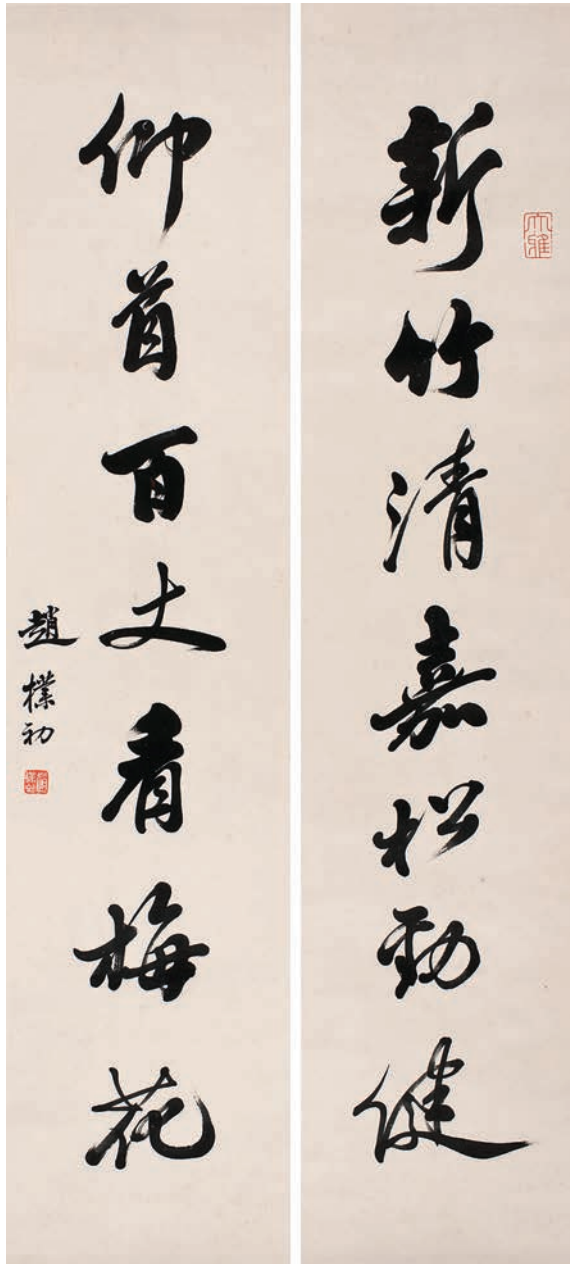 新竹清嘉松勁健
仰首百丈看梅花
趙樸初
大雅